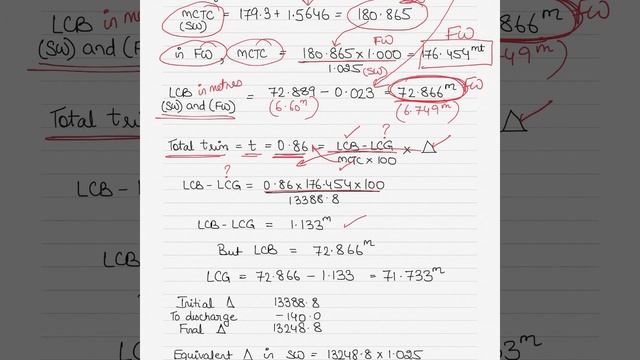 MCTC (SW) = 179.3 + 1.5646 = 180.865
in FW, MCTC = 180.865 x 1.000 FW = 176.454 mt FW
1.025 (SW)
LCB in metres (SW) and (FW) = 72.889 - 0.023 = 72.866 m FW
(6.60 m) (6.749 m)
Total trim = t = 0.86 = LCB - LCG ? x Δ
MCTC x 100
?
LCB - LCG = 0.86 x 176.454 x 100
13388.8
LCB - LCG = 1.133 m
But LCB = 72.866 m
LCG = 72.866 - 1.133 = 71.733 m
Initial Δ 13388.8
To discharge -140.0
Final Δ 13248.8
Equivalent Δ in SW = 13248.8 x 1.025